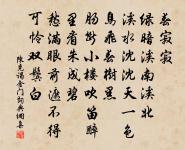 春寂寂
綠暗溪南溪北
溪水沈沈天一色
鳥飛春樹黑
腸斷小樓吹笛醉
里看朱成碧
愁滿眼前遮不得
可憐雙鬢白
陳克謁金門詞典